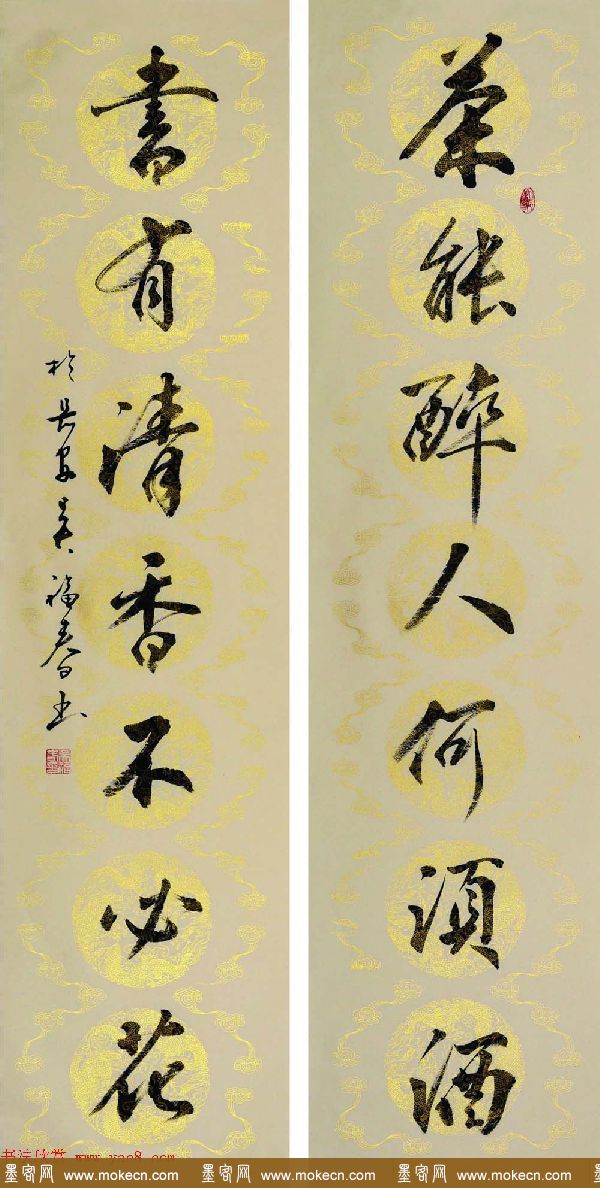 茶能醉人何須酒
書有清香不必花
於長安吴福春书
墨客网 www.mokecn.com 墨客网 www.mokecn.com 墨客网 www.mokecn.com